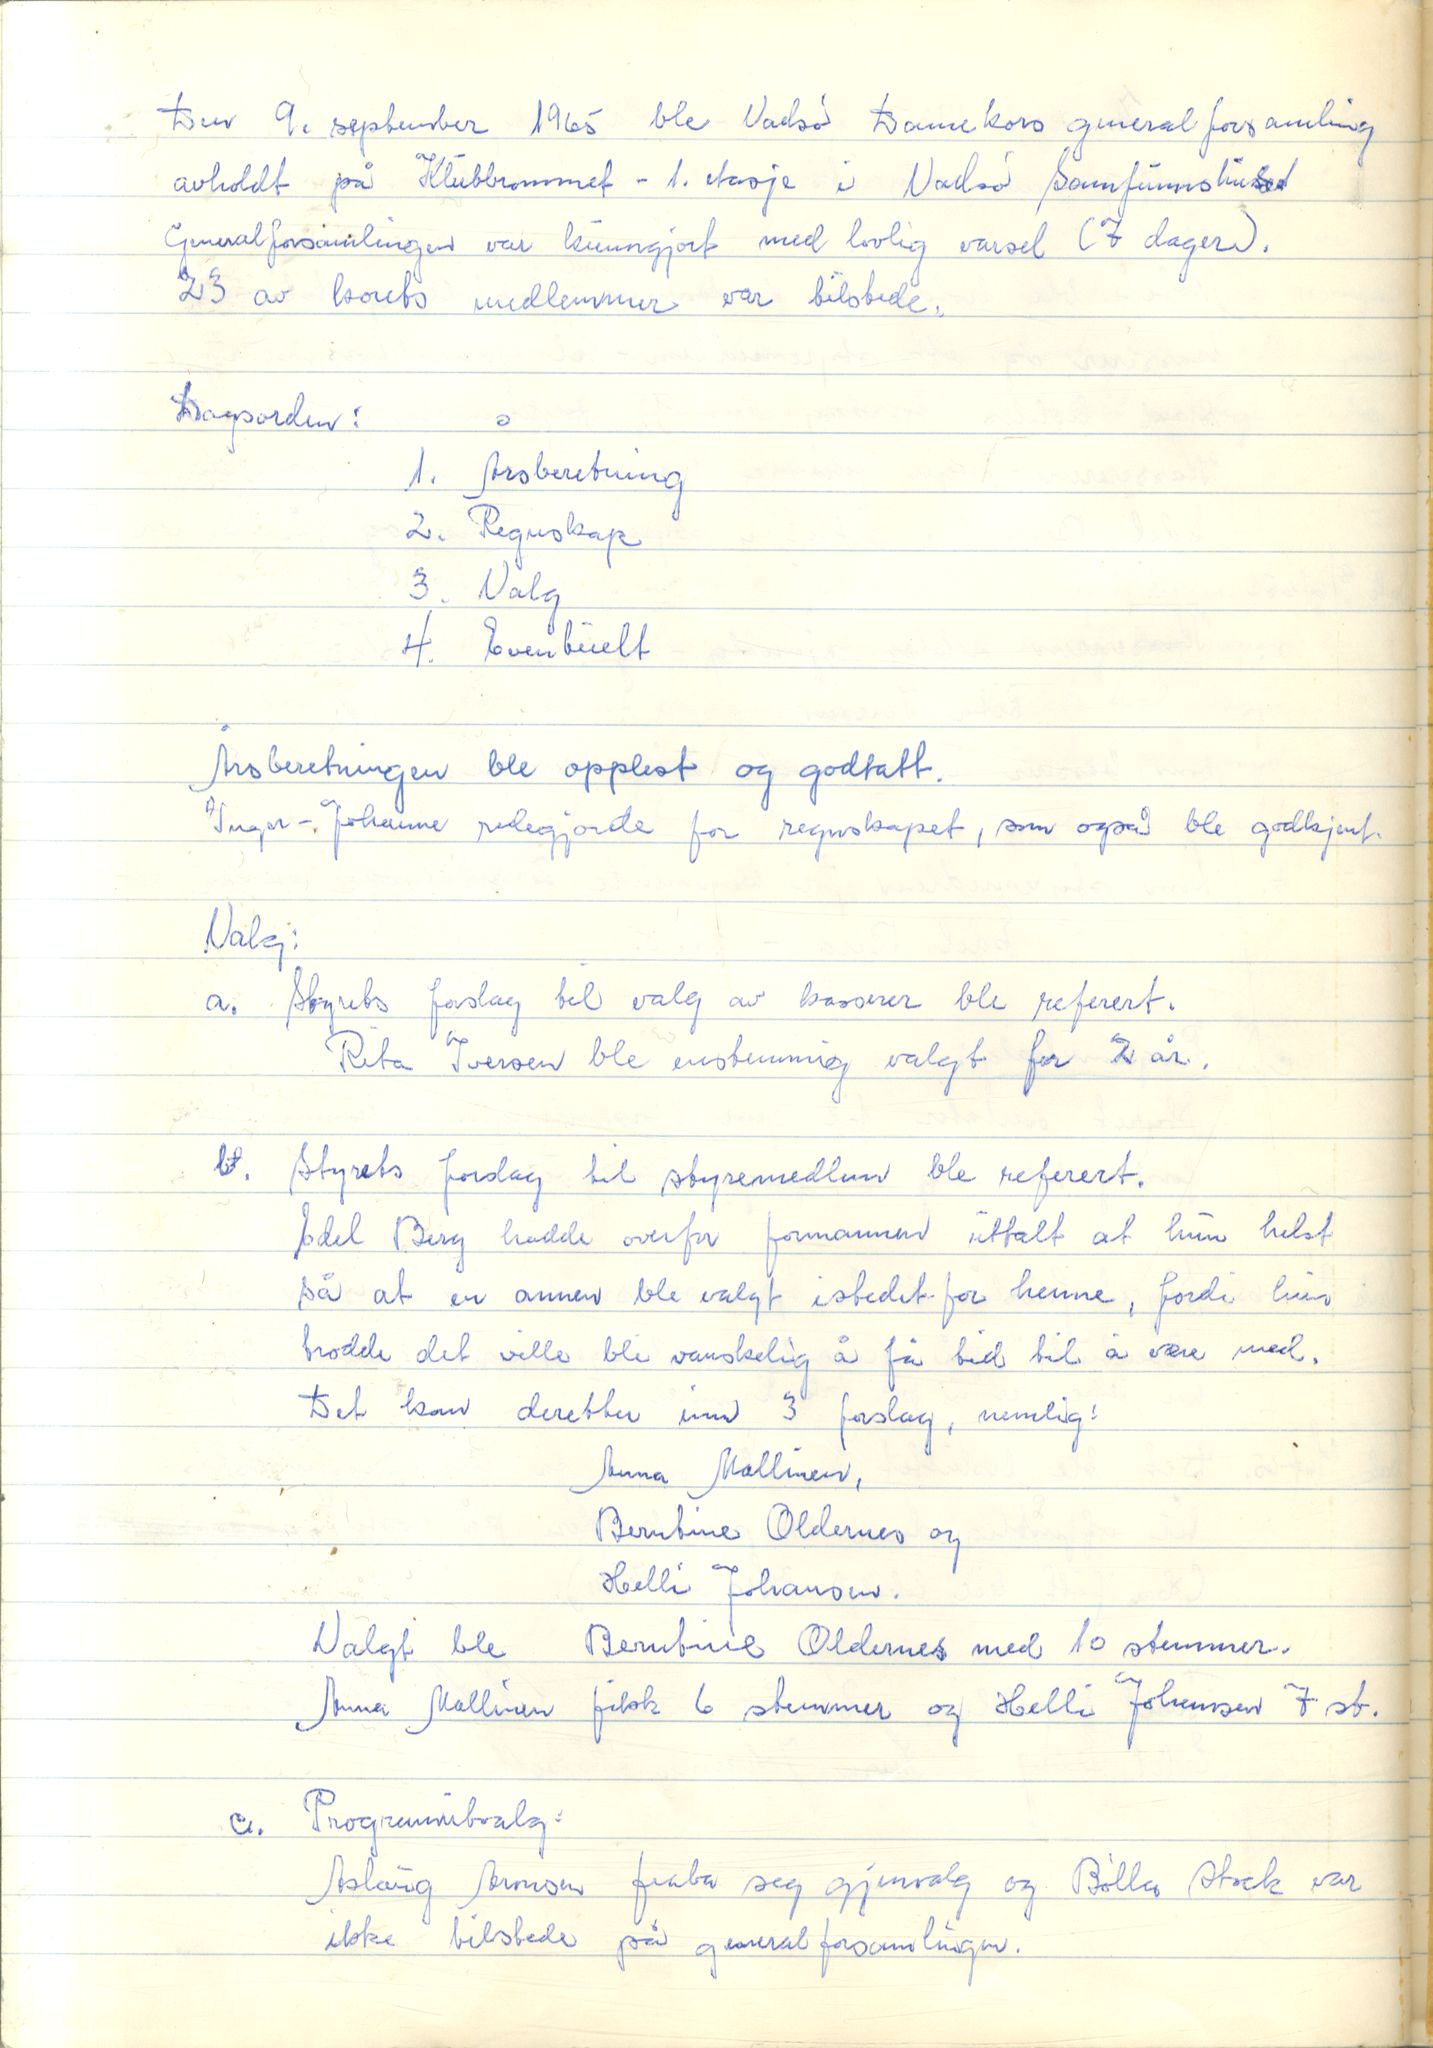 Den 9. september 1965 ble Vadsø Damekors generalforsamling
avholdt på Klubbrommet - 1. etasje i Vadsø Samfunnshuset
Generalforsamlingen var kunngjort med lovlig varsel (7 dager).
23 av korets medlemmer var tilstede.
Dagsorden:
1. Årsberetning
2. Regnskap
3. Valg
4. Eventuelt
Årsberetningen ble opplest og godtatt.
Inger-Johanne redegjorde for regnskapet, som også ble godkjent.
Valg:
a. Styrets forslag til valg av kasserer ble referert.
Rita Iversen ble enstemmig valgt for 2 år.
b. Styrets forslag til styremedlem ble referert.
Edel Berg hadde overfor formannen uttalt at hun helst
så at en annen ble valgt istedet for henne, fordi hun
trodde det ville bli vanskelig å få tid til å være med.
Det kom deretter inn 3 forslag, nemlig:
Anna Mallinen,
Berntine Oldernes og
Helli Johansen.
Valgt ble Berntine Oldernes med 10 stemmer.
Anna Mallinen fikk 6 stemmer og Helli Johansen 7 st.
c. Programutvalg:
Aslaug Aronsen fraba seg gjenvalg og Bolla Stock var
ikke tilstede på generalforsamlingen.